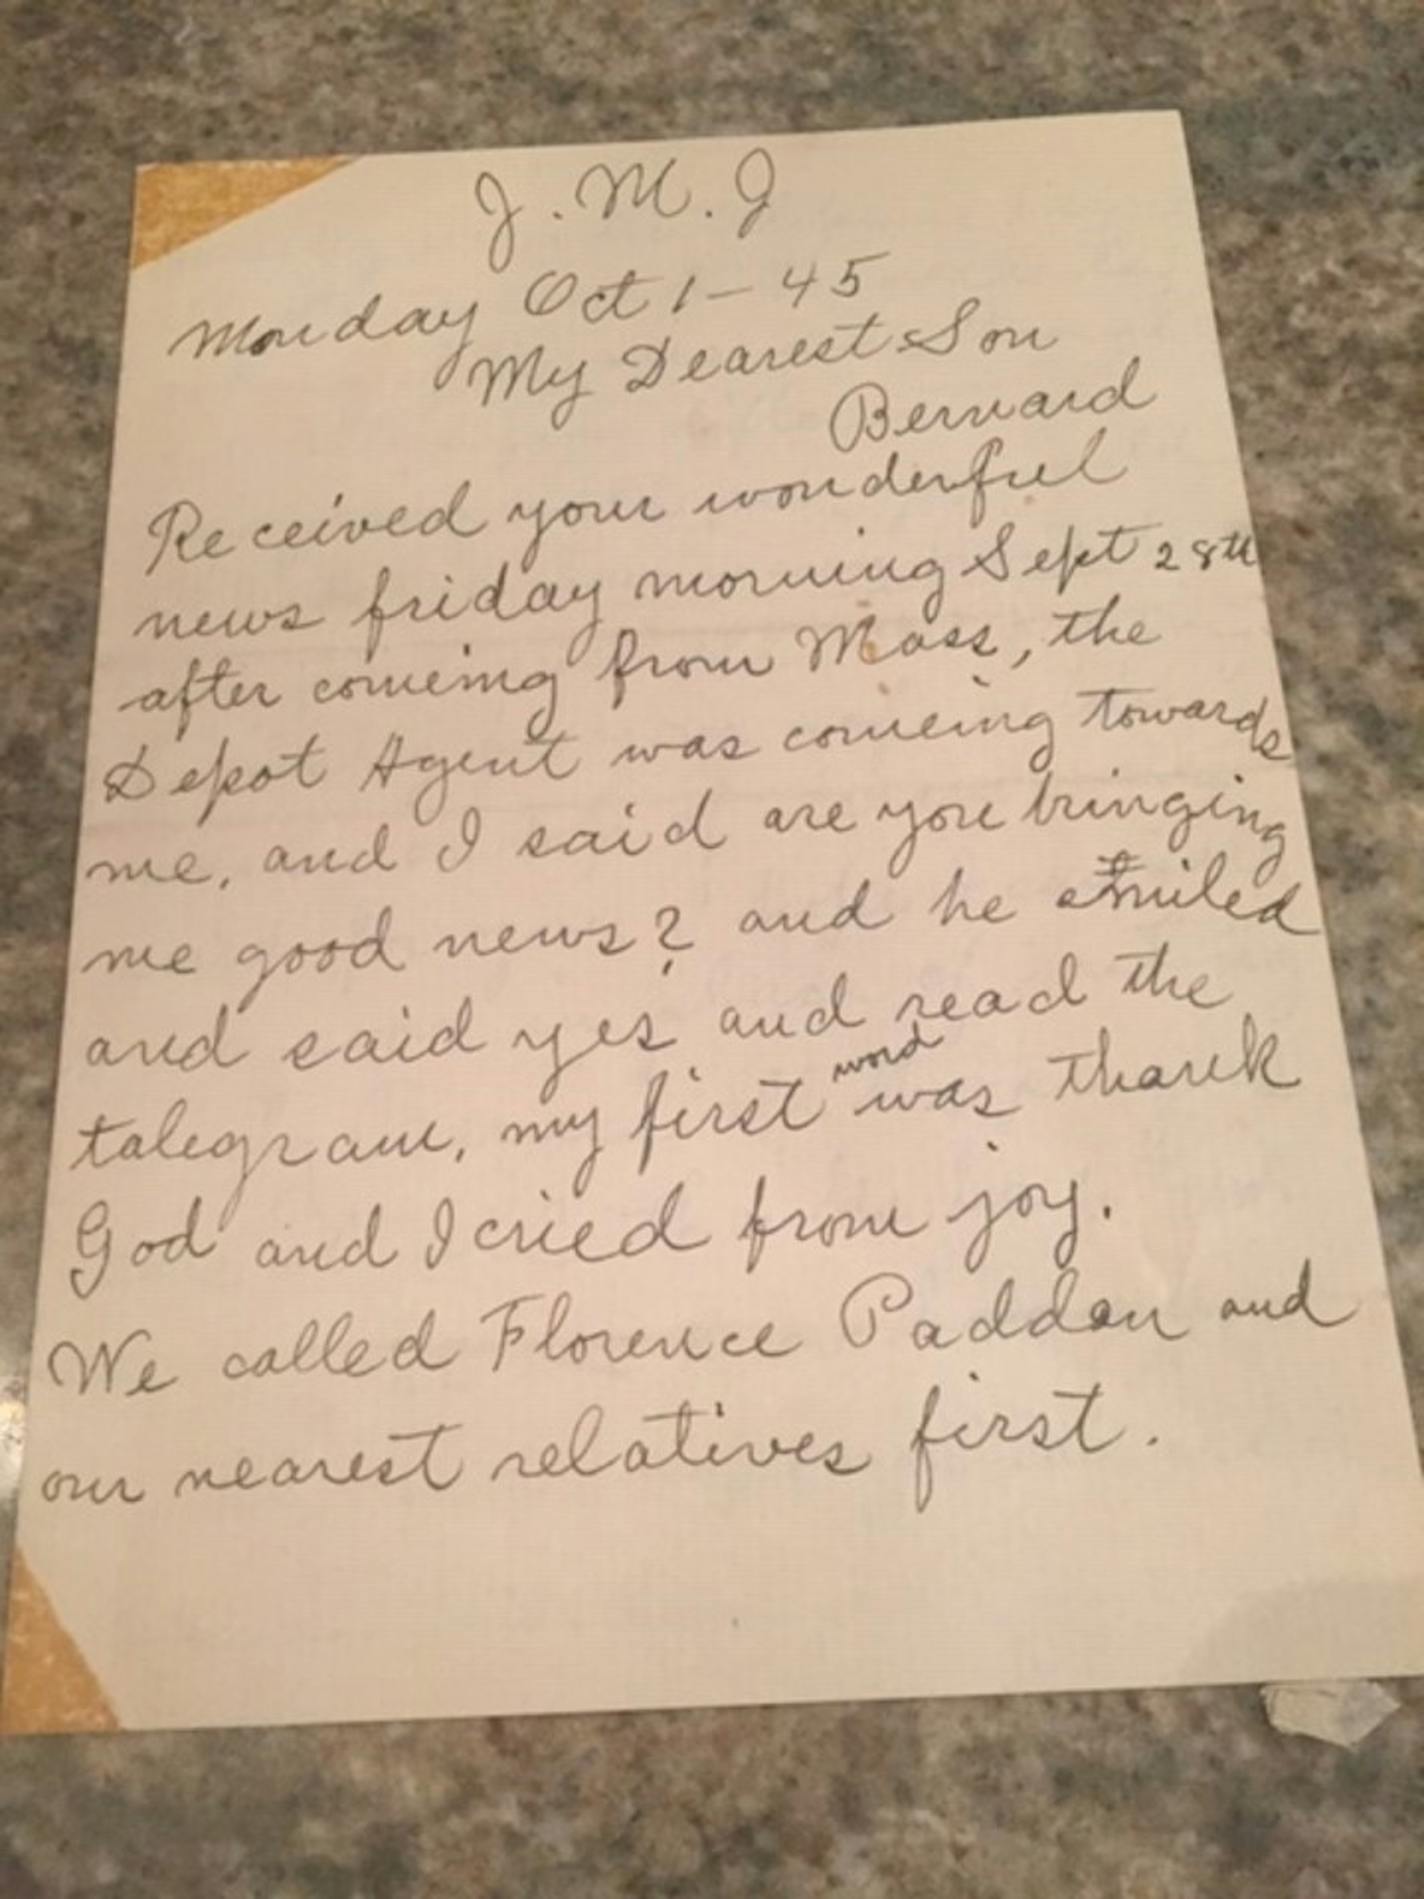 J. M. J
Monday Oct 1 - 45
My Dearest Son
Bernard
Received your wonderful
news friday morning Sept 28th
after comeing from Mass, the
Depot Agent was comeing towards
me, and I said are you bringing
me good news? and he smiled
and said yes and read the
word
talegram, my first was thank
God and I cried from joy.
We called Florence Paddan and
our nearest relatives first.